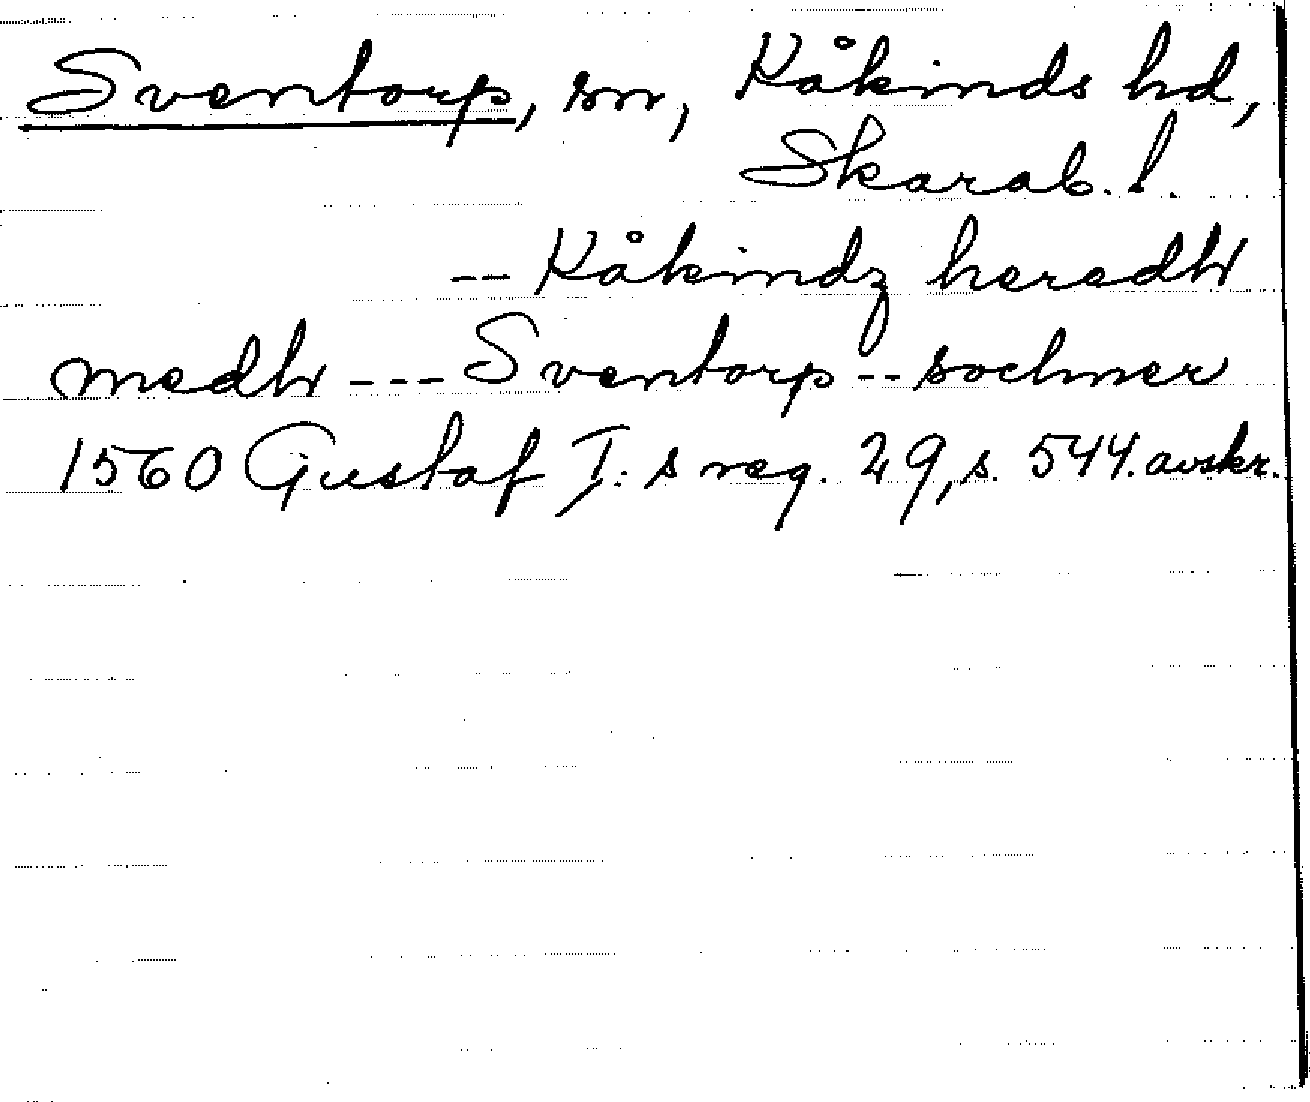 Sventorp, sn, Kåkinds hd,
Skarab. l.
-- Kåkindz heredh
medh --- Sventorp -- sochner
1560 Gustaf I:s reg. 29, s. 544. avskr.